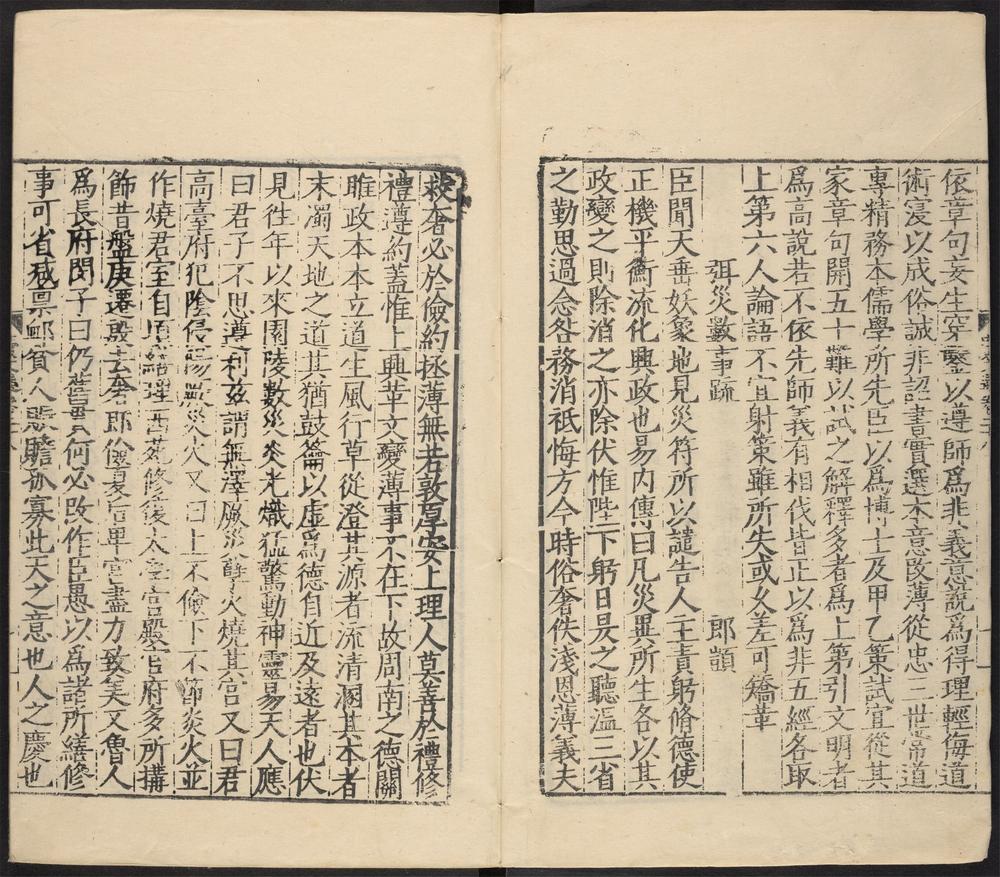 依章句妄生穿鑿以遵師爲非義意說爲得理輕侮道
術寖以成俗誠非詔書實選本意改薄從忠三世常道
專精務本儒學所先臣以爲博士及甲乙策試宜從其
家章句開五十難以試之解釋多者爲上第引文明者
爲高說若不依先師義有相伐皆正以爲非五經各取
上第六人論語不宜射策雖所失或久差可矯革
弭災數事疏 郎顗
臣聞天垂妖象地見災符所以譴告人主責躬脩德使
正機平衡流化興政也易內傳曰凡災異所生各以其
政變之則除消之亦除伏惟陛下躬日昃之聽溫三省
之勤思過念咎務消祇悔方今時俗奢佚淺恩薄義夫
救奢必於儉約拯薄無若敦厚安上理人莫善於禮修
禮遵約蓋惟上興革文變薄事不在下故周南之德關
雎政本本立道生風行草從澄其源者流清溷其本者
末濁天地之道其猶鼓籥以虛爲德自近及遠者也伏
見往年以來園陵數災炎光熾猛驚動神靈易天人應
曰君子不思遵利茲謂無澤厥災孽火燒其宮又曰君
高臺府犯陰侵陽厥災火又曰上不儉下不節炎火並
作燒君室自頃繕理西苑修復太學宮殿官府多所搆
飾昔盤庚遷殷去奢卽儉夏后卑室盡力致美又魯人
爲長府閔子曰仍舊貫何必改作臣愚以爲諸所繕修
事可省減禀卹貧人賑贍孤寡此天之意也人之慶也